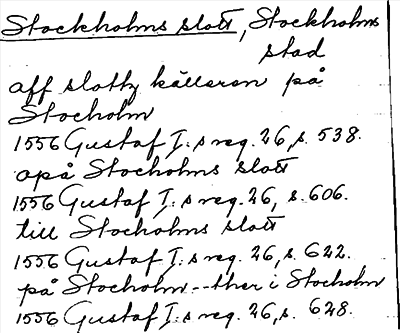 Stockholms slott, Stockholms
stad
aff slottz källeren på
Stocholm
1556 Gustaf I:s reg. 26, s. 538.
opå Stocholms slott
1556 Gustaf I:s reg. 26, s. 606.
till Stocholms slott
1556 Gustaf I:s reg. 26, s. 622.
på Stocholm -- ther i Stocholm
1556 Gustaf I:s reg. 26, s. 628.